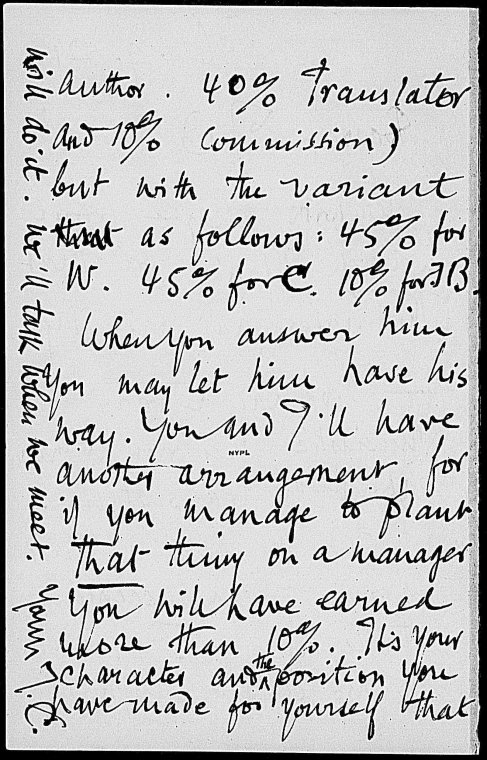 author. 40% Translator
and 10% commission)
but with the variant
as follows: 45% for
W. 45% for C. 10% for JB.
When you answer him
you may let him have his
way. You and I'll have
NYPL
another arrangement, for
if you manage to plant
that thing on a manager
you will have earned
more than 10%. It's your
character and the position you
have made for yourself that
will do it. We'll talk when we meet. Yours J.C.